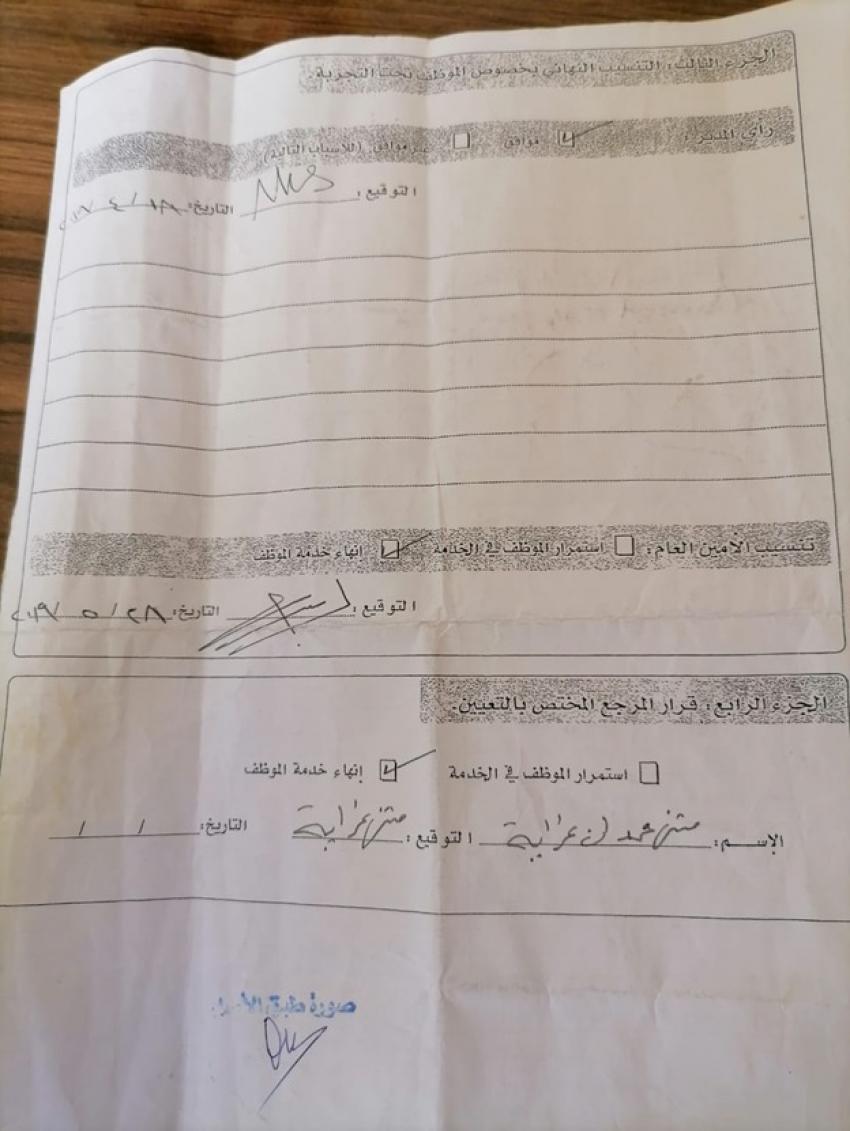 الجزء الثالث: التنسيب النهائي بخصوص الموظف تحت التجربة:
رأي المدير: موافق غير موافق (للأسباب التالية)
التوقيع: التاريخ: ١٨ / ٤ /
تنسيب الأمين العام: استمرار الموظف في الخدمة إنهاء خدمة الموظف
التوقيع: التاريخ: ٢٨ / ٥ /
الجزء الرابع: قرار المرجع المختص بالتعيين.
استمرار الموظف في الخدمة إنهاء خدمة الموظف
الإســم: غرايبة التوقيع: غرايبة التاريخ: / /
صورة طبق الأصل